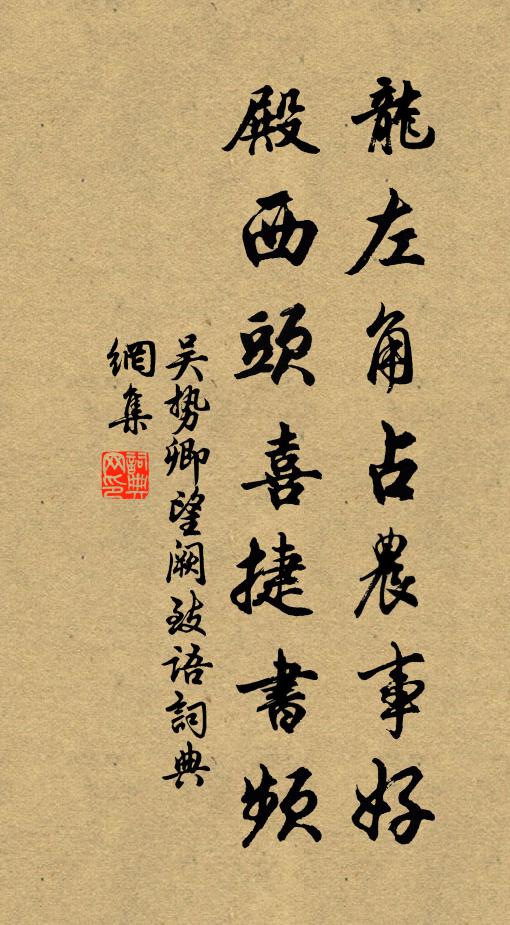 龍左角占農事好
殿西頭喜捷書頻
吴势卿望阙致语詞典
網集
詞典
网印